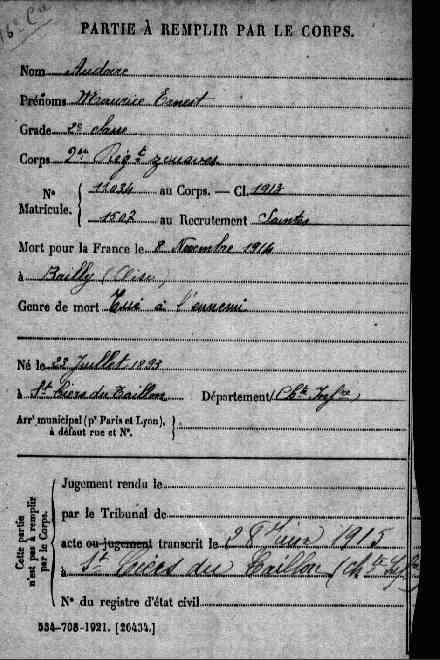 16e Cie
PARTIE À REMPLIR PAR LE CORPS.
Nom Audoire
Prénoms Maurice Ernest
Grade 2e classe
Corps 2me Régt zouaves
No Matricule. 11034 au Corps. — Cl. 1913
1502 au Recrutement Saintes
Mort pour la France le 8 Novembre 1914
à Bailly (Oise)
Genre de mort Tué à l'ennemi
Né le 23 Juillet 1893
à St Ciers du Taillon Département (Chte Infre)
Arrt municipal (pr Paris et Lyon),
à défaut rue et No.
Cette partie n'est pas à remplir par le Corps.
Jugement rendu le
par le Tribunal de
acte ou jugement transcrit le 1915
à St Ciers du Taillon (Chte Infre)
No du registre d'état civil
534-708-1921. [26434.]